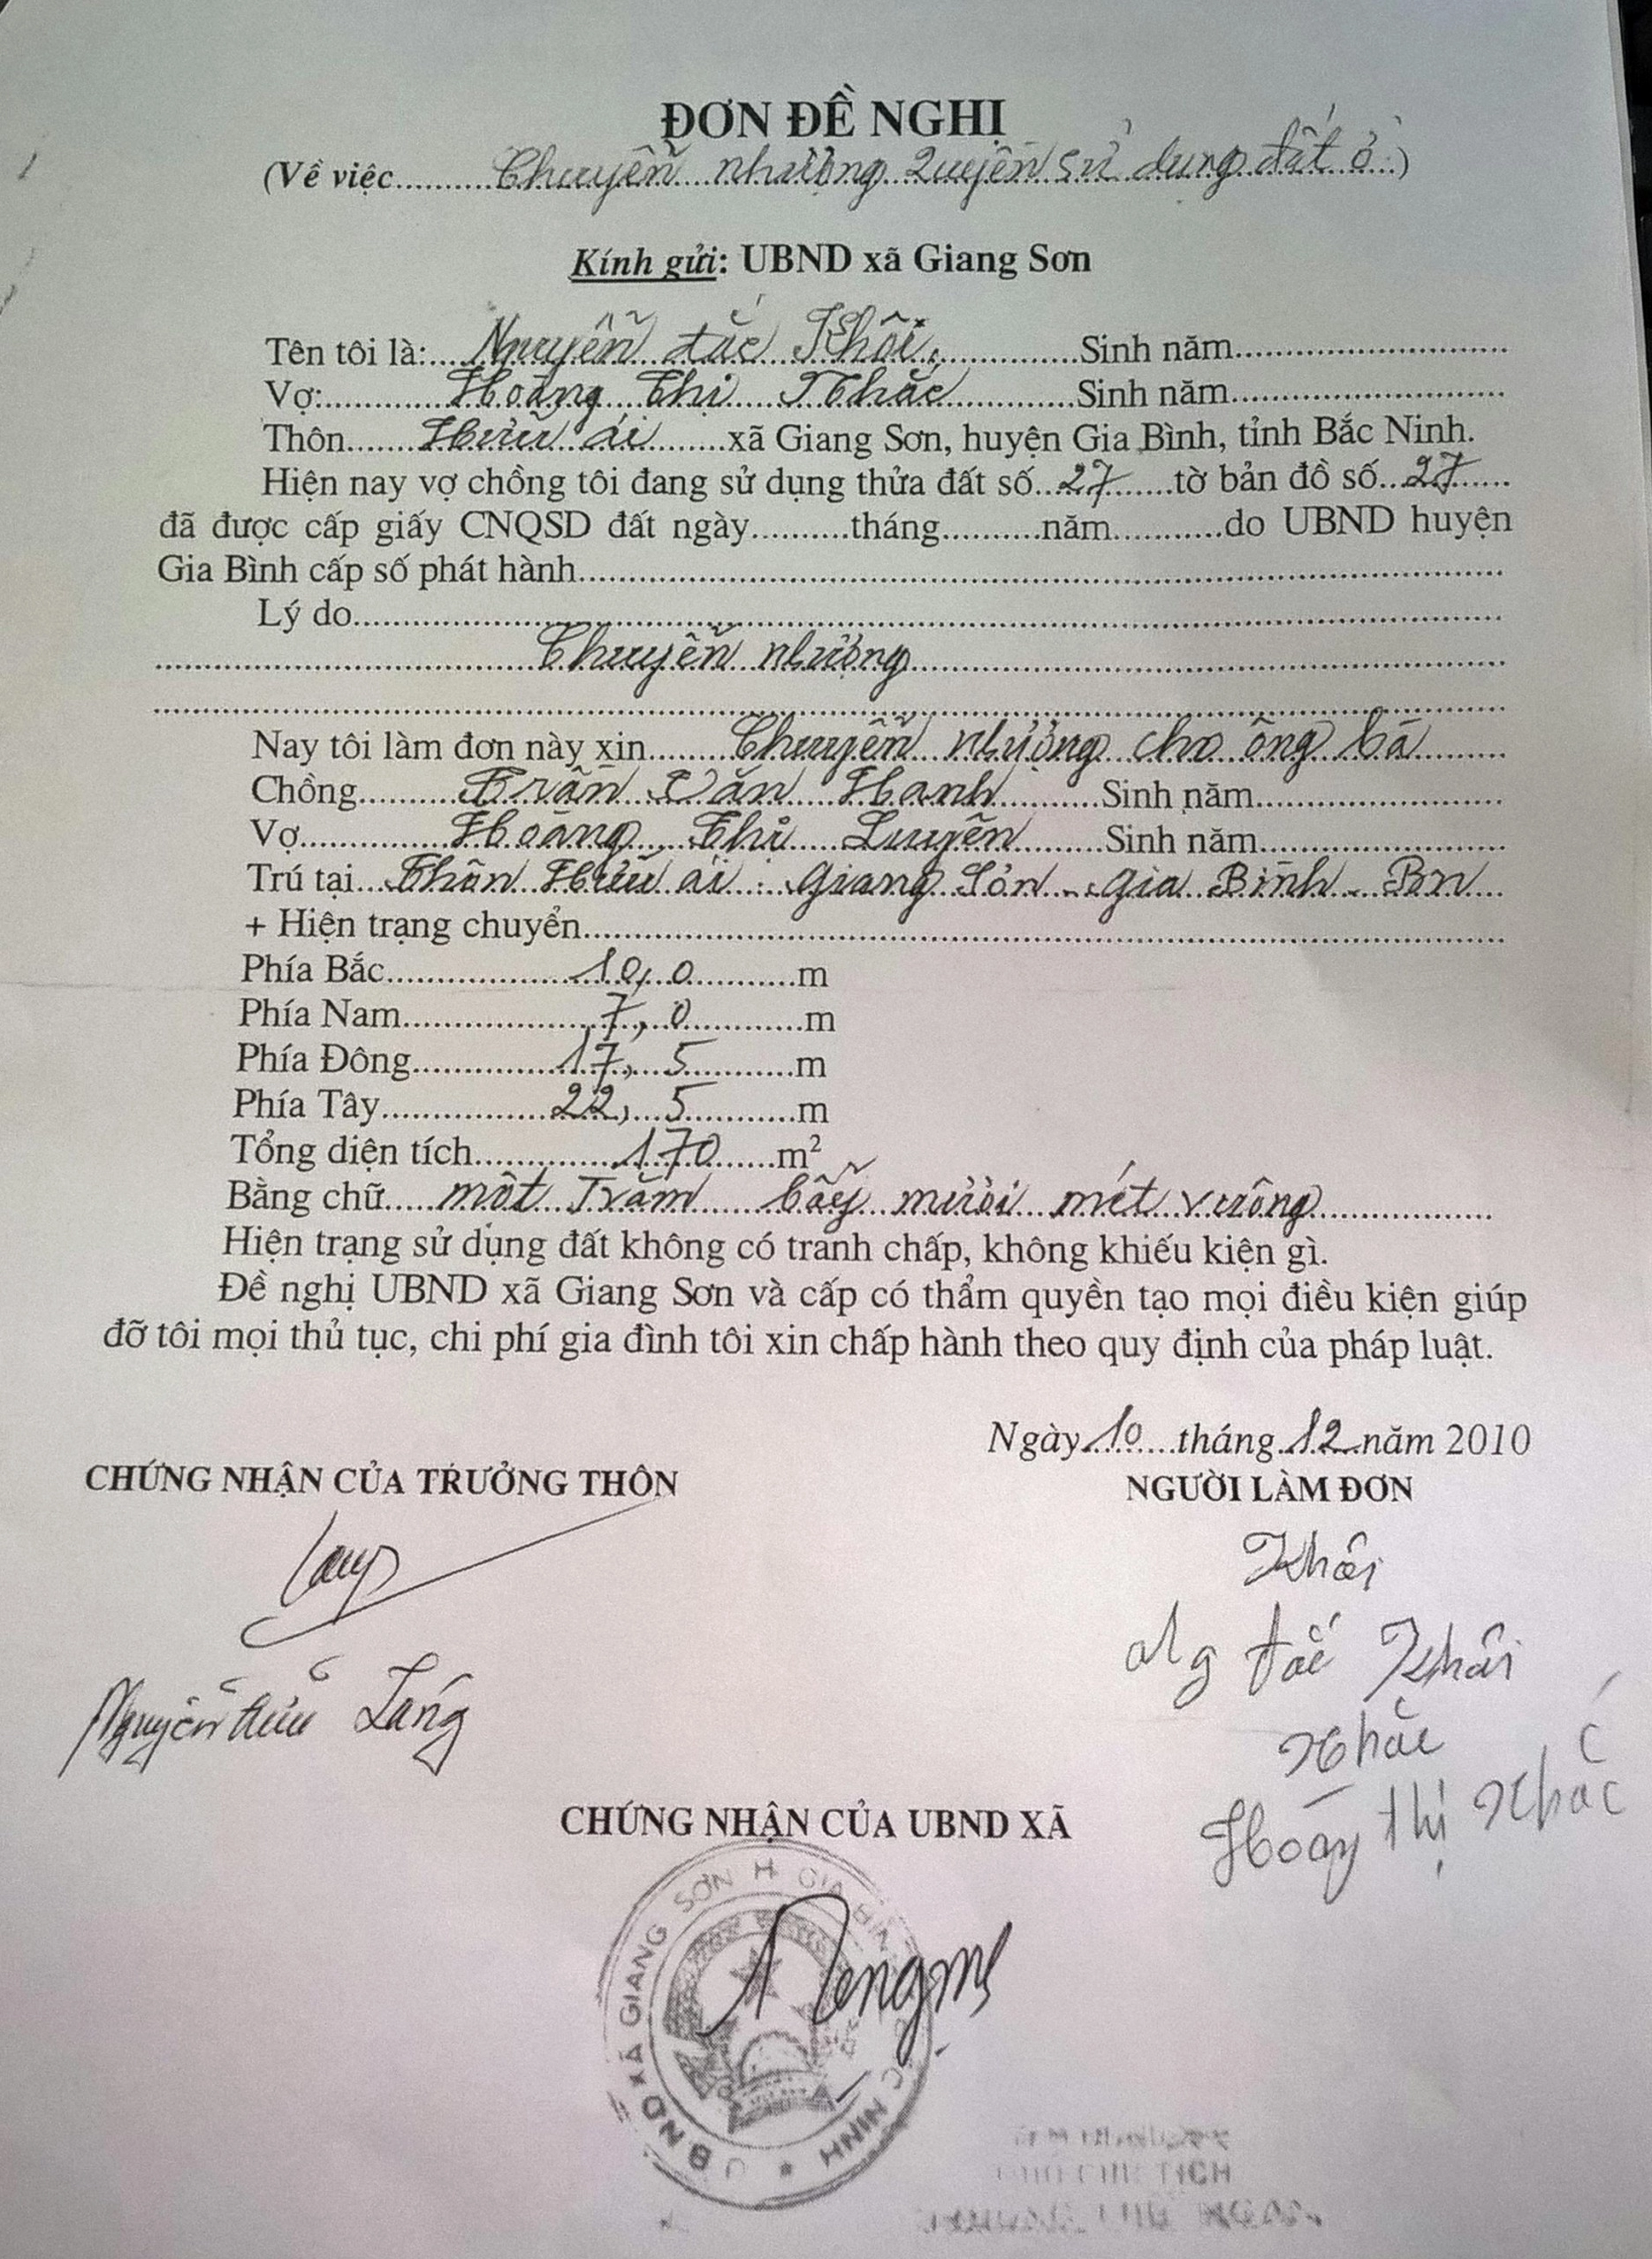 ĐƠN ĐỀ NGHỊ
(Về việc..........Chuyển nhượng Quyền sử dụng đất ở.)
Kính gửi: UBND xã Giang Sơn
Tên tôi là:....Nguyễn đắc Khôi..............Sinh năm..............................
Vợ:............Hoàng Thị Khắc.............Sinh năm..............................
Thôn.......Hữu ái.......xã Giang Sơn, huyện Gia Bình, tỉnh Bắc Ninh.
Hiện nay vợ chồng tôi đang sử dụng thửa đất số..27.......tờ bản đồ số...27......
đã được cấp giấy CNQSD đất ngày..........tháng..........năm...........do UBND huyện
Gia Bình cấp số phát hành....................................................
Lý do....................................................
....................Chuyển nhượng....................
Nay tôi làm đơn này xin.........Chuyển nhượng cho ông bà........
Chồng..........Trần Văn Hanh..........Sinh năm.........................
Vợ...............Hoàng Thị Luyên.........Sinh năm.........................
Trú tại...Thôn Hữu ái - Giang Sơn - Gia Bình - BN
+ Hiện trạng chuyển....................................................
Phía Bắc...................10,0............m
Phía Nam....................7,0............m
Phía Đông...............17,5...........m
Phía Tây.................22,5...........m
Tổng diện tích..............170.......m²
Bằng chữ.....một Trăm bẩy mười mét vuông..................
Hiện trạng sử dụng đất không có tranh chấp, không khiếu kiện gì.
Đề nghị UBND xã Giang Sơn và cấp có thẩm quyền tạo mọi điều kiện giúp
đỡ tôi mọi thủ tục, chi phí gia đình tôi xin chấp hành theo quy định của pháp luật.
Ngày..10....tháng..12..năm 2010
CHỨNG NHẬN CỦA TRƯỞNG THÔN
NGƯỜI LÀM ĐƠN
Khôi
Ng đắc Khôi
Nguyễn Hữu Láng
Khắc
Hoàng thị Khắc
CHỨNG NHẬN CỦA UBND XÃ
UBND XÃ GIANG SƠN H GIA BÌNH
NINH
CHỦ TỊCH